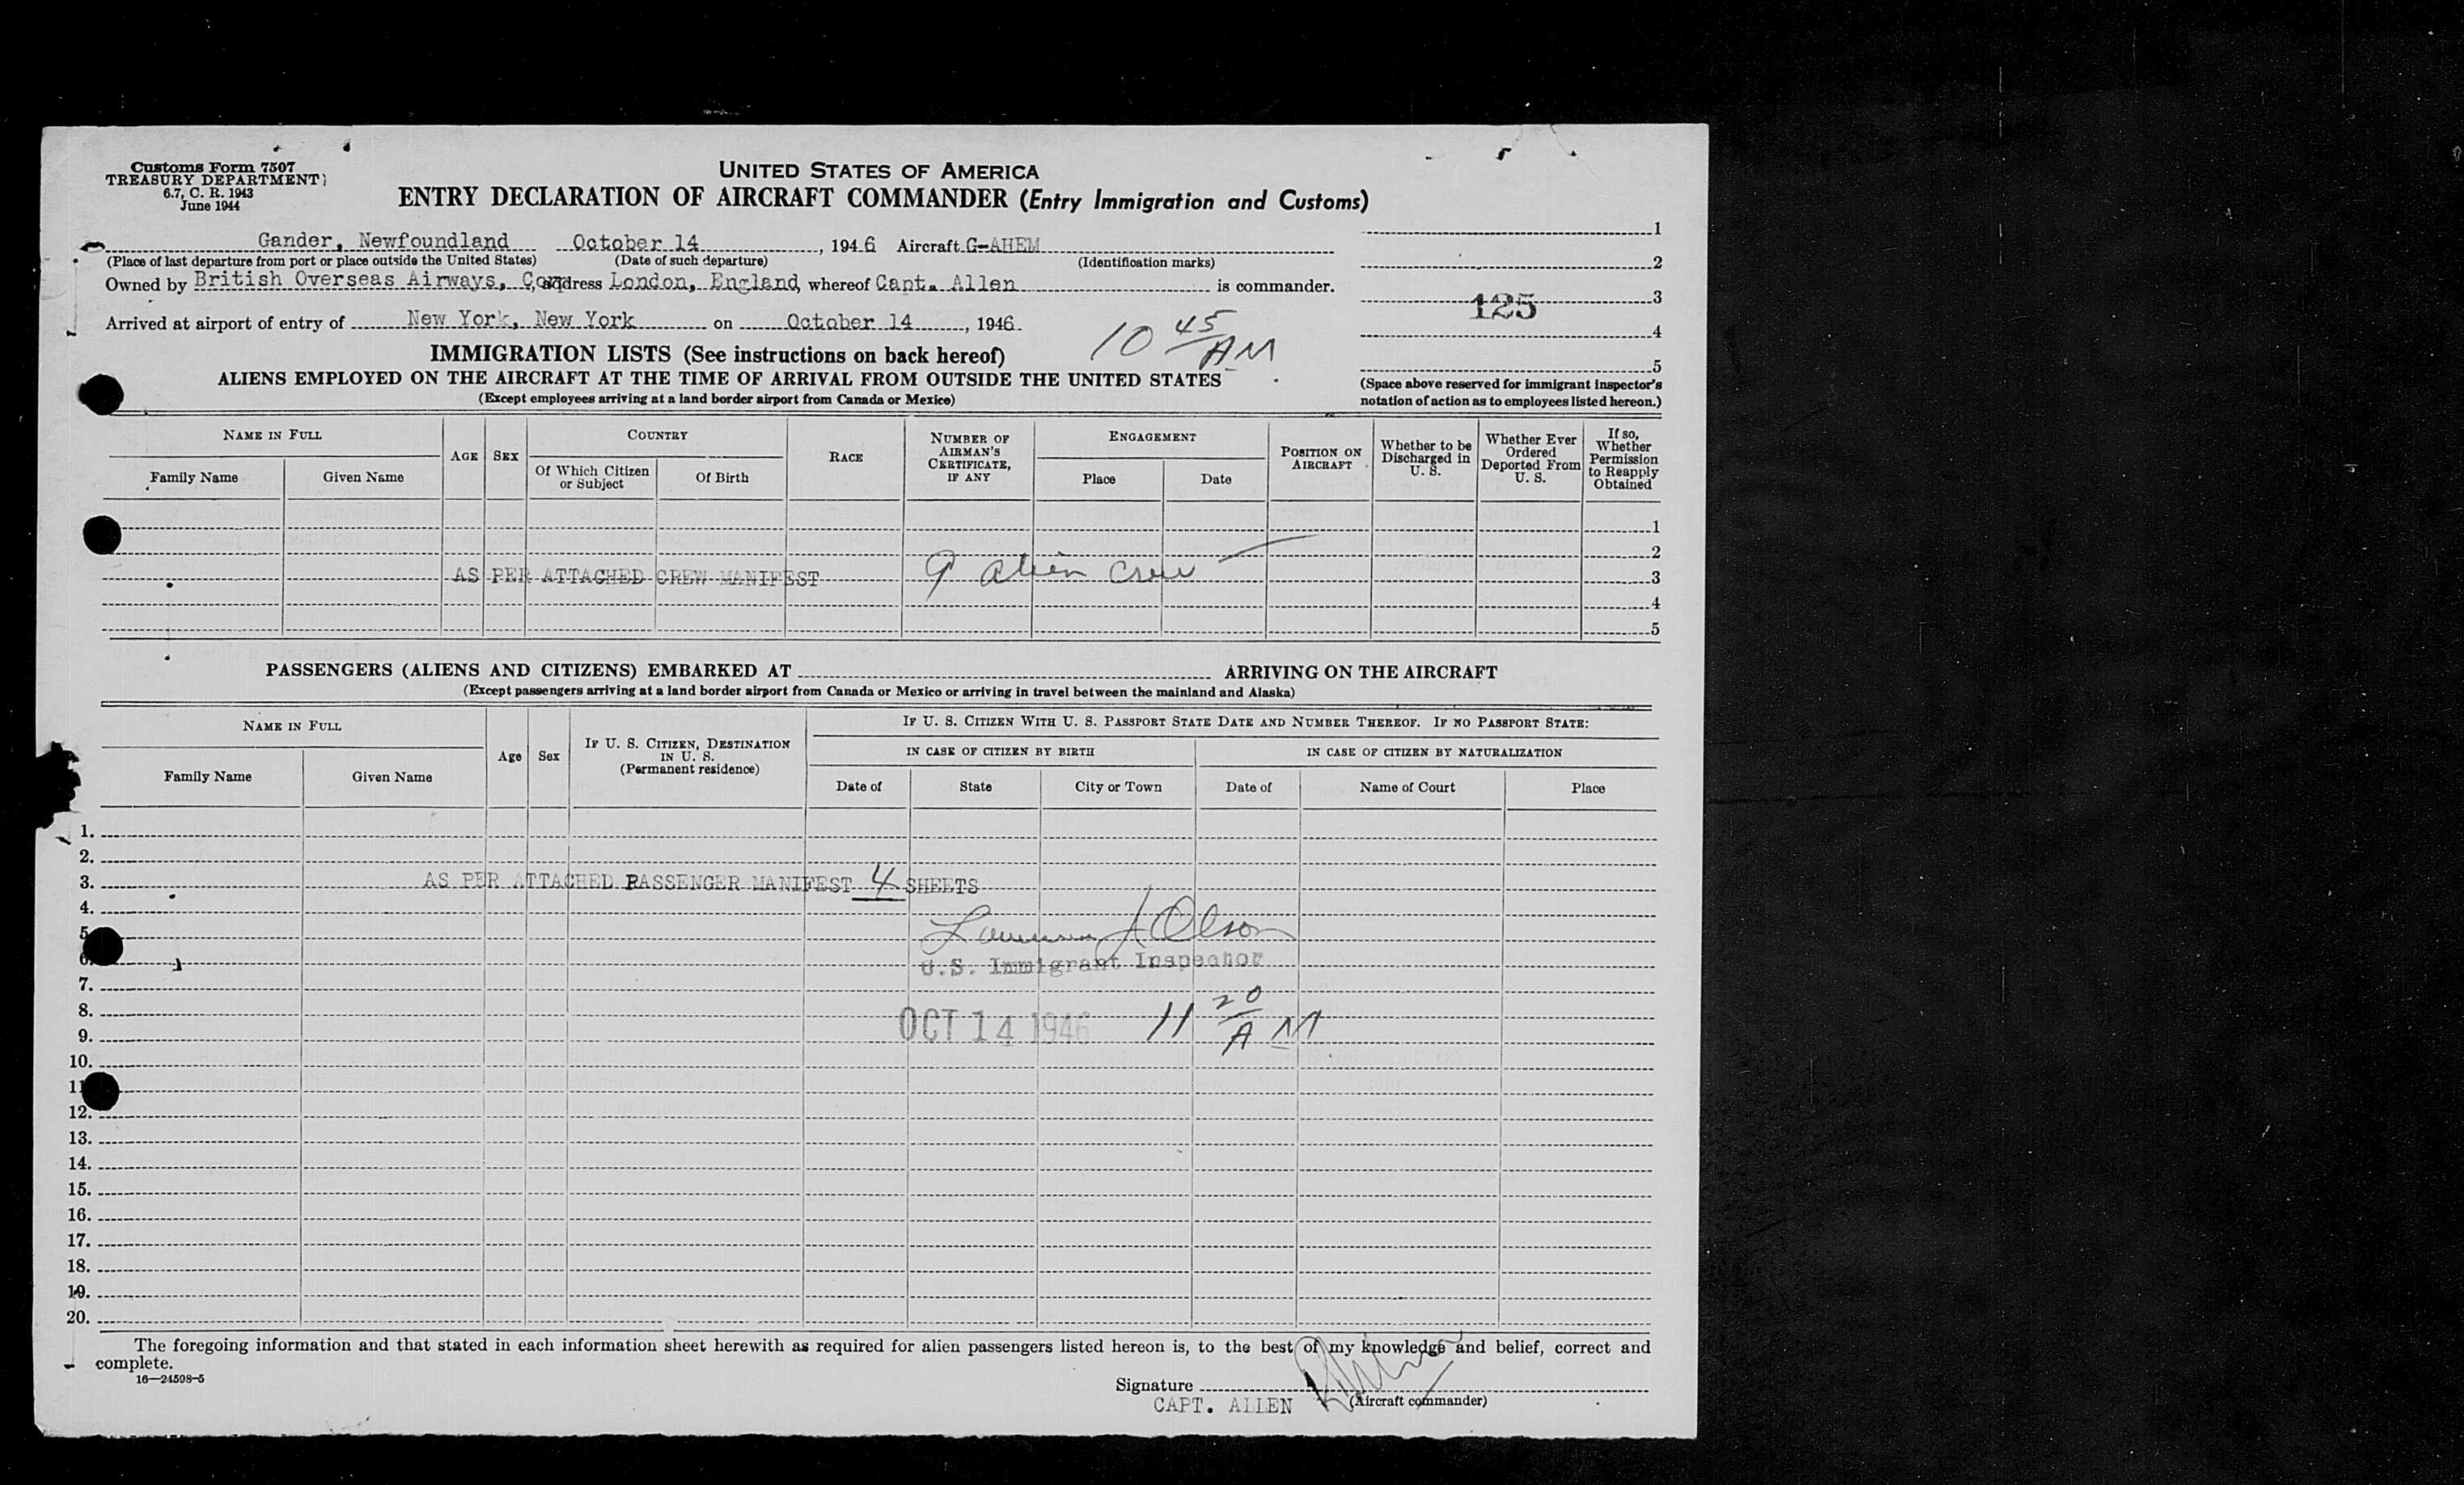 Customs Form 7507
TREASURY DEPARTMENT
6.7, C. R. 1943
June 1944
UNITED STATES OF AMERICA
ENTRY DECLARATION OF AIRCRAFT COMMANDER (Entry Immigration and Customs)
Gander, Newfoundland October 14, 1946 Aircraft G-AHEM
(Place of last departure from port or place outside the United States) (Date of such departure) (Identification marks)
Owned by British Overseas Airways, Corp address London, England, whereof Capt. Allen is commander.
Arrived at airport of entry of New York, New York on October 14, 1946.
10 45 AM
1
2
3
125
4
5
(Space above reserved for immigrant inspector's
notation of action as to employees listed hereon.)
IMMIGRATION LISTS (See instructions on back hereof)
ALIENS EMPLOYED ON THE AIRCRAFT AT THE TIME OF ARRIVAL FROM OUTSIDE THE UNITED STATES
(Except employees arriving at a land border airport from Canada or Mexico)
NAME IN FULL
Family Name Given Name
AGE SEX
COUNTRY
Of Which Citizen or Subject Of Birth
RACE
NUMBER OF AIRMAN'S CERTIFICATE, IF ANY
ENGAGEMENT
Place Date
POSITION ON AIRCRAFT
Whether to be Discharged in U. S.
Whether Ever Ordered Deported From U. S.
If so, Whether Permission to Reapply Obtained
1
2
AS PER ATTACHED CREW MANIFEST 9 alien crew 3
4
5
PASSENGERS (ALIENS AND CITIZENS) EMBARKED AT ARRIVING ON THE AIRCRAFT
(Except passengers arriving at a land border airport from Canada or Mexico or arriving in travel between the mainland and Alaska)
NAME IN FULL
Family Name Given Name
Age Sex
IF U. S. CITIZEN, DESTINATION IN U. S.
(Permanent residence)
IF U. S. CITIZEN WITH U. S. PASSPORT STATE DATE AND NUMBER THEREOF. IF NO PASSPORT STATE:
IN CASE OF CITIZEN BY BIRTH IN CASE OF CITIZEN BY NATURALIZATION
Date of State City or Town Date of Name of Court Place
1.
2.
3. AS PER ATTACHED PASSENGER MANIFEST 4 SHEETS
4.
5. Olson
6. U.S. Immigrant Inspector
7.
8. OCT 14 1946 11 20 AM
9.
10.
11
12.
13.
14.
15.
16.
17.
18.
19.
20.
The foregoing information and that stated in each information sheet herewith as required for alien passengers listed hereon is, to the best of my knowledge and belief, correct and
complete.
16—24598-5
Signature
CAPT. ALLEN (Aircraft commander)